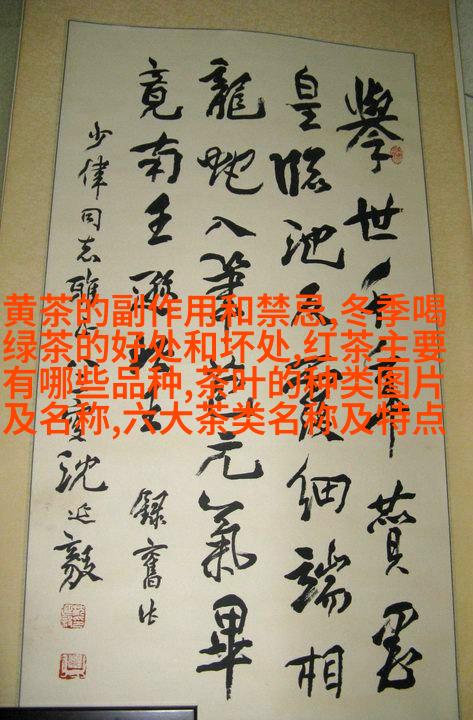 黄茶的副作用和禁忌,冬季喝
绿茶的好处和坏处,红茶主要
有哪些品种,茶叶的种类图片
及名称,六大茶类名称及特点
擧世千
皇臨池 細端相
龍蛇入筆 元氣畢
竟南王
錄舊作
少偉同志雅 沈延毅